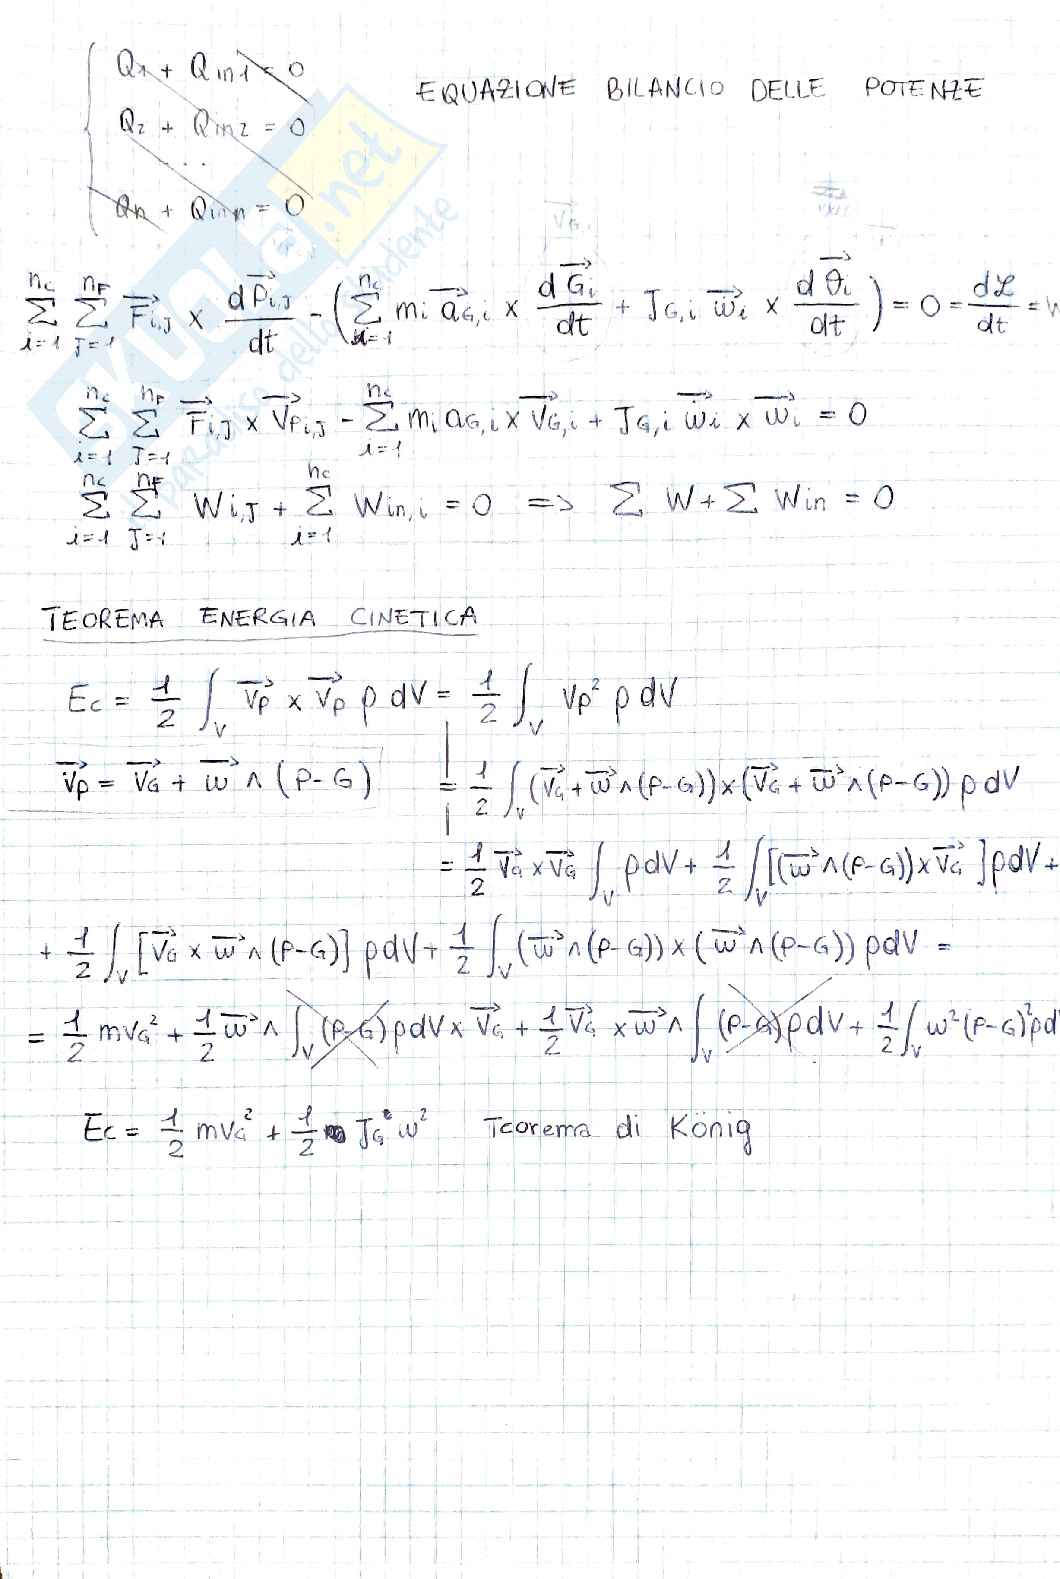 Q1 + Qin1 = 0
EQUAZIONE BILANCIO DELLE POTENZE
Q2 + Qin2 = 0
...
Qn + Qinn = 0
SKUOLA.net
il paradiso dello studente
∑_{i=1}^{nc} ∑_{J=1}^{nF} F⃗i,J × dP⃗i,J/dt − (∑_{i=1}^{nc} mi a⃗G,i × dG⃗i/dt + JG,i ω⃗i × dϑ⃗i/dt) = 0 = dℒ/dt = W
∑_{i=1}^{nc} ∑_{J=1}^{nF} F⃗i,J × V⃗Pi,J − ∑_{i=1}^{nc} mi aG,i × V⃗G,i + JG,i ω⃗i × ω⃗i = 0
∑_{i=1}^{nc} ∑_{J=1}^{nF} Wi,J + ∑_{i=1}^{nc} Win,i = 0 => ∑ W + ∑ Win = 0
TEOREMA ENERGIA CINETICA
Ec = 1/2 ∫_V V⃗P × V⃗P ρ dV = 1/2 ∫_V VP² ρ dV
V⃗P = V⃗G + ω⃗ ∧ (P-G)
= 1/2 ∫_V (V⃗G + ω⃗ ∧ (P-G)) × (V⃗G + ω⃗ ∧ (P-G)) ρ dV
= 1/2 V⃗G × V⃗G ∫_V ρ dV + 1/2 ∫_V [(ω⃗ ∧ (P-G)) × V⃗G] ρ dV +
+ 1/2 ∫_V [V⃗G × ω⃗ ∧ (P-G)] ρ dV + 1/2 ∫_V (ω⃗ ∧ (P-G)) × (ω⃗ ∧ (P-G)) ρ dV =
= 1/2 mVG² + 1/2 ω⃗ ∧ ∫_V (P-G) ρ dV × V⃗G + 1/2 V⃗G × ω⃗ ∧ ∫_V (P-G) ρ dV + 1/2 ∫_V ω² (P-G)² ρ d
Ec = 1/2 mVG² + 1/2 JG ω² Teorema di König